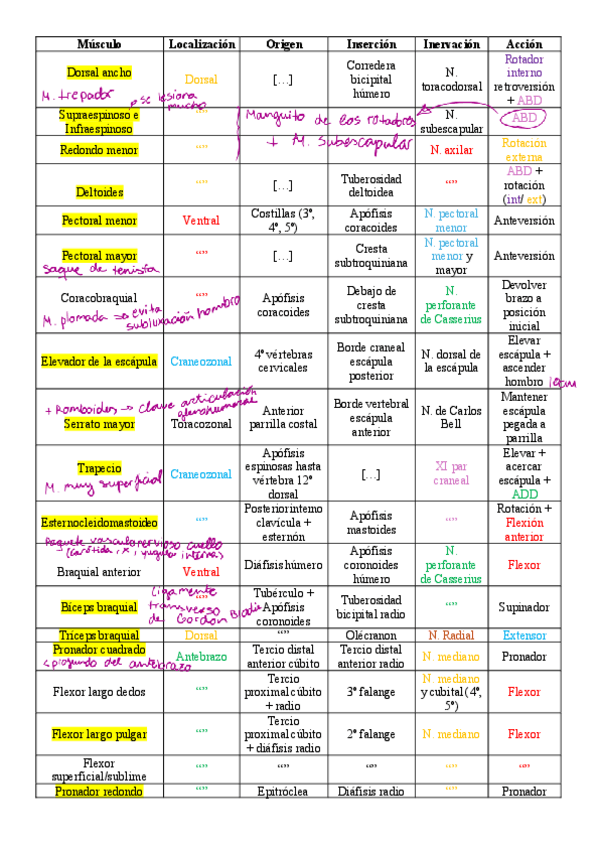 Músculo Localización Origen Inserción Inervación Acción
Dorsal ancho Dorsal [...] Corredera bicipital húmero N. toracodorsal Rotador interno retroversión + ABD
M. trepador → se lesiona mucho
Supraespinoso e Infraespinoso “” Manguito de los rotadores N. subescapular ABD
Redondo menor “” + M. Subescapular N. axilar Rotación externa
Deltoides “” [...] Tuberosidad deltoidea “” ABD + rotación (int/ ext)
Pectoral menor Ventral Costillas (3º, 4º, 5º) Apófisis coracoides N. pectoral menor Anteversión
Pectoral mayor “” [...] Cresta subtroquiniana N. pectoral menor y mayor Anteversión
saque de tenista
Coracobraquial “” Apófisis coracoides Debajo de cresta subtroquiniana N. perforante de Casserius Devolver brazo a posición inicial
M. plomada → evita subluxación hombro
Elevador de la escápula Craneozonal 4º vértebras cervicales Borde craneal escápula posterior N. dorsal de la escápula Elevar escápula + ascender hombro 10cm
+ Romboides → clave articulación glenohumeral
Serrato mayor Toracozonal Anterior parrilla costal Borde vertebral escápula anterior N. de Carlos Bell Mantener escápula pegada a parrilla
Trapecio Craneozonal Apófisis espinosas hasta vértebra 12º dorsal [...] XI par craneal Elevar + acercar escápula + ADD
M. muy superficial
Esternocleidomastoideo “” Posteriorinterno clavícula + esternón Apófisis mastoides “” Rotación + Flexión anterior
Paquete vasculonervioso cuello
(carótida, X, yugular interna)
Braquial anterior Ventral Diáfisis húmero Apófisis coronoides húmero N. perforante de Casserius Flexor
Bíceps braquial “” Tubérculo + Apófisis coronoides Tuberosidad bicipital radio “” Supinador
Ligamento transverso de Gordon Brodie
Tríceps braquial Dorsal “” Olécranon N. Radial Extensor
Pronador cuadrado Antebrazo Tercio distal anterior cúbito Tercio distal anterior radio N. mediano Pronador
profundo del antebrazo
Flexor largo dedos “” Tercio proximal cúbito + radio 3º falange N. mediano y cubital (4º, 5º) Flexor
Flexor largo pulgar “” Tercio proximal cúbito + diáfisis radio 2º falange N. mediano Flexor
Flexor superficial/sublime “” “” “” “” “”
Pronador redondo “” Epitróclea Diáfisis radio “” Pronador